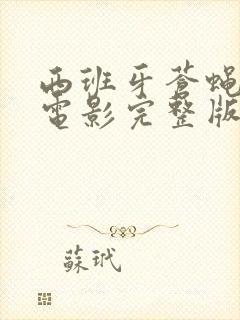 西班牙苍蝇
電影完整版
蘇玳